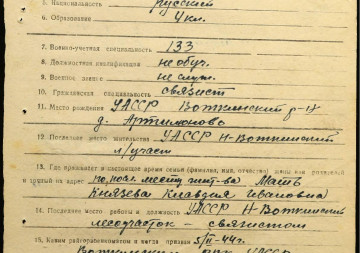 5. Национальность русский
6. Образование 4 кл.
7. Военно-учетная специальность 133
8. Должностная квалификация необуч.
9. Военное звание не служ.
10. Гражданская специальность связист
11. Место рождения УАССР Воткинский р-н
д. Артимоново
12. Последнее место жительства УАССР Н-Воткинский
л/участ
13. Где проживает в настоящее время семья (фамилия, имя, отчество) жены или родителей
и точный их адрес по, месту жит-ва Мать
Князева Клавдия Ивановна
14. Последнее место работы и должность УАССР Н-Воткинский
лесоучасток - связистом
15. Каким райгорвоенкоматом и когда призван 5/II-44г.
Воткинским РВК УАССР